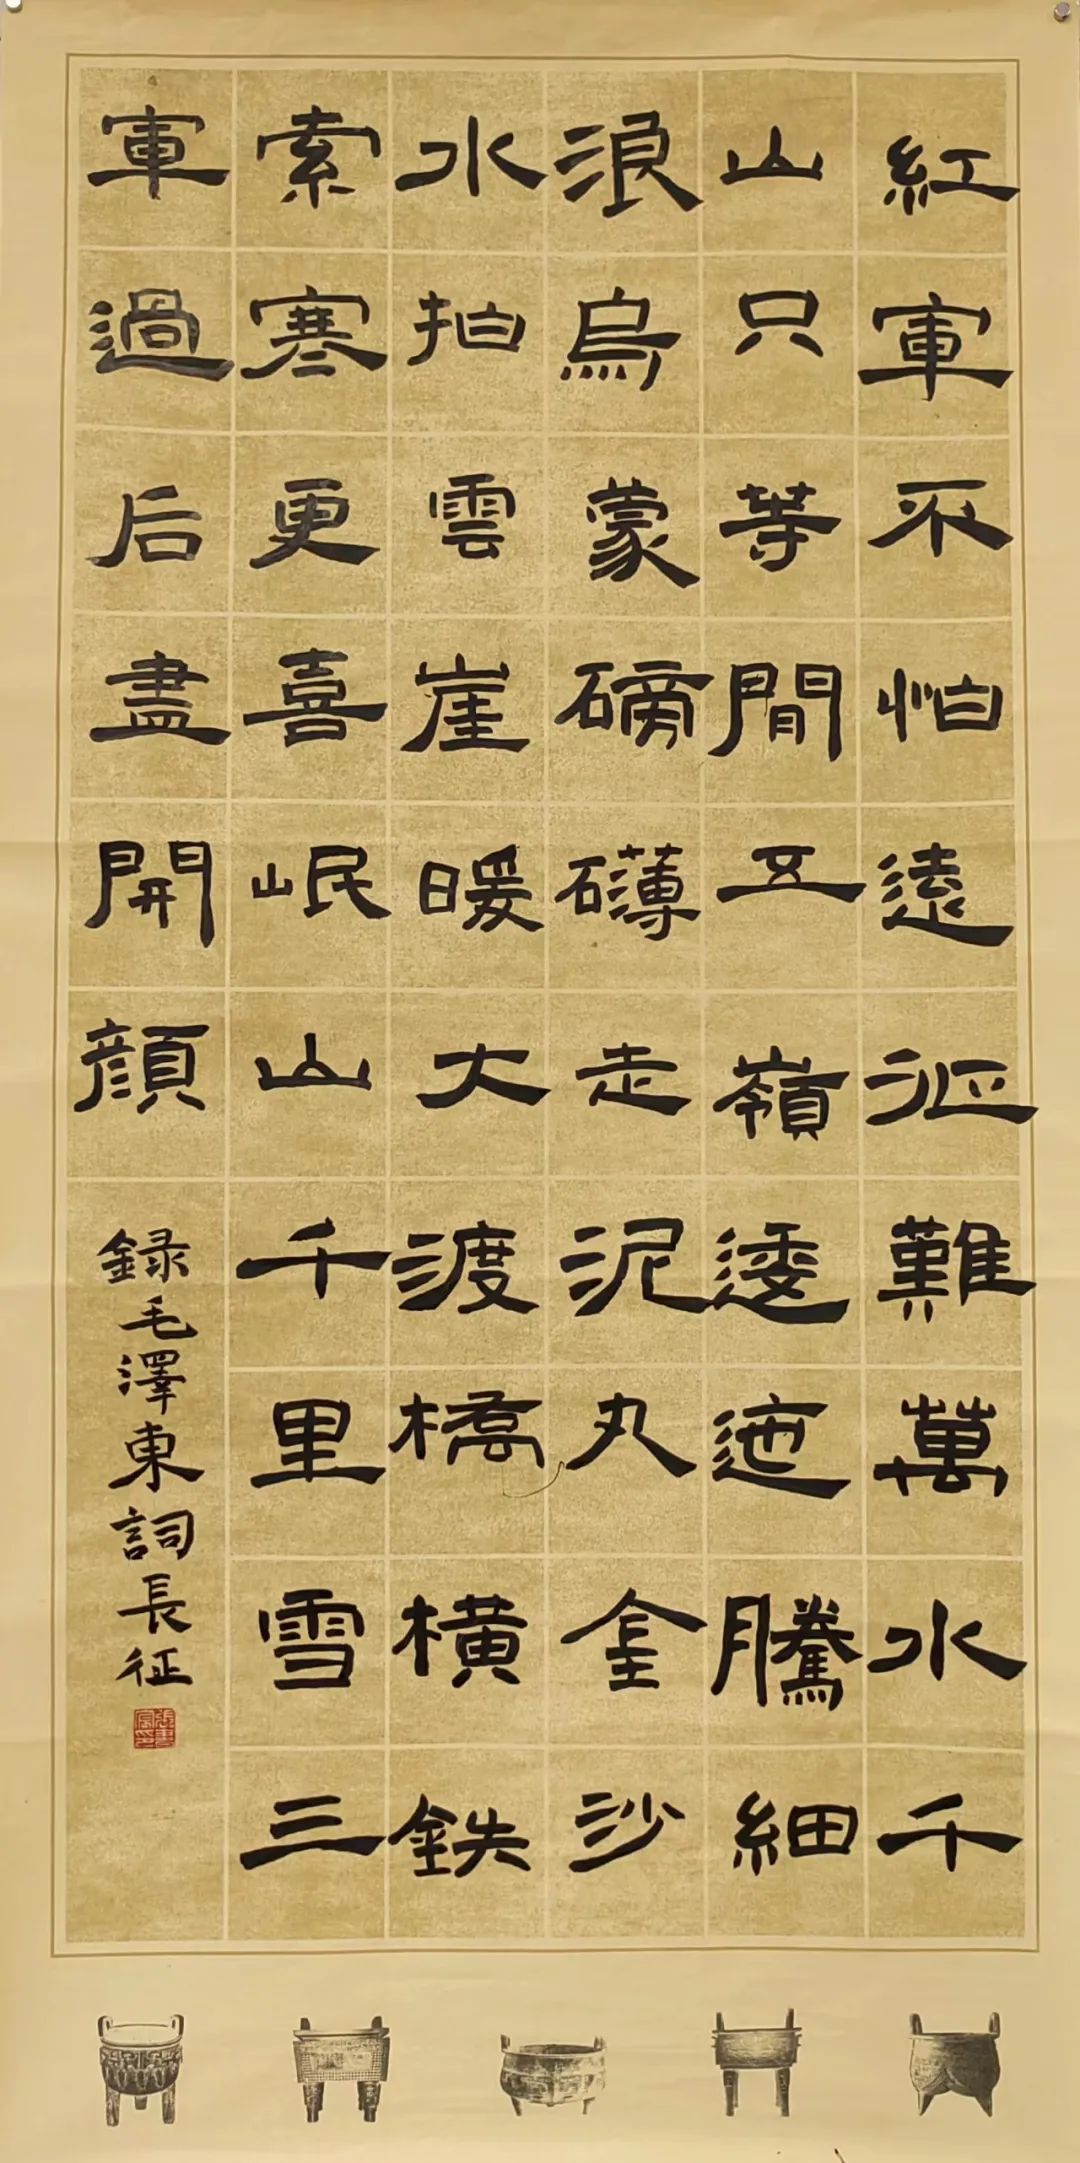 紅軍不怕遠征難萬水千
山只等閒五嶺逶迤騰細
浪烏蒙磅礴走泥丸金沙
水拍雲崖暖大渡橋橫鉄
索寒更喜岷山千里雪三
軍過后盡開顔
録毛澤東詞長征